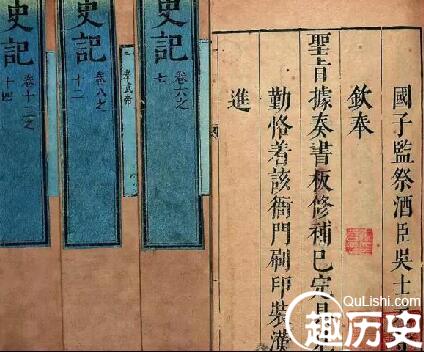 國子監祭酒臣吳士
欽奉
聖旨據奏書板修補已完具
勤恪着該衙門刷印裝潢
進
史記
卷六之
七
史記
卷八之
十二
史記
卷十二之
十四
QuLishi.com
趣历史